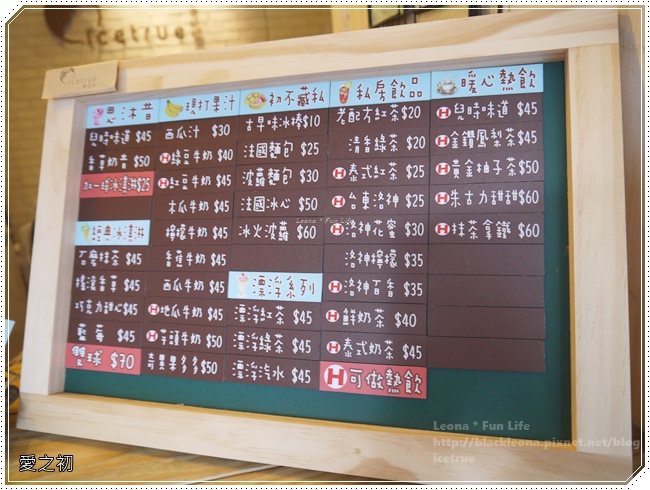 icetrue
icetrue
思沐昔
兒時味道 $45
香草奶昔 $50
加一球冰淇淋$25
經典冰淇淋
石磨抹茶 $45
搖滾香草 $45
巧克力甜心$45
藍莓 $45
雙球 $70
現打果汁
西瓜汁 $30
H綠豆牛奶 $40
H紅豆牛奶 $40
木瓜牛奶 $45
檸檬牛奶 $45
香蕉牛奶 $45
西瓜牛奶 $45
H地瓜牛奶 $45
H芋頭牛奶 $50
奇異果多多$50
初不藏私
古早味冰棒$10
法國麵包 $25
波蘿麵包 $30
法國冰心 $50
冰火波蘿 $60
漂浮系列
漂浮紅茶 $45
漂浮綠茶 $45
漂浮汽水 $45
私房飲品
老配方紅茶$20
清香綠茶 $20
H泰式紅茶 $25
H台東洛神 $25
H洛神花蜜 $30
洛神檸檬 $35
H洛神百香 $35
H鮮奶茶 $40
H泰式奶茶 $45
H可做熱飲
暖心熱飲
H兒時味道 $45
H金鑽鳳梨茶$45
H黃金柚子茶$50
H朱古力甜甜$60
H抹茶拿鐵 $60
Leona * Fun Life
Leona * Fun Life
http://blackleona.pixnet.net/blog
icetrue
愛之初